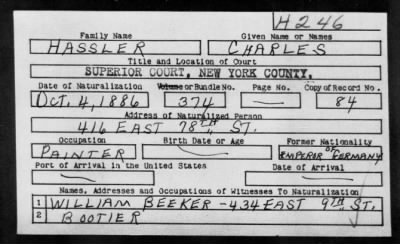 H246
Family Name Given Name or Names
HASSLER CHARLES
Title and Location of Court
SUPERIOR COURT, NEW YORK COUNTY.
Date of Naturalization Volume or Bundle No. Page No. Copy of Record No.
OCT. 4, 1886 374 — 84
Address of Naturalized Person
416 EAST 78TH ST.
Occupation Birth Date or Age Former Nationality
PAINTER — EMPEROR OF GERMANY
Port of Arrival in the United States Date of Arrival
— —
Names, Addresses and Occupations of Witnesses To Naturalization
1 WILLIAM BEEKER - 434 EAST 9TH ST.
2 BOOTIER